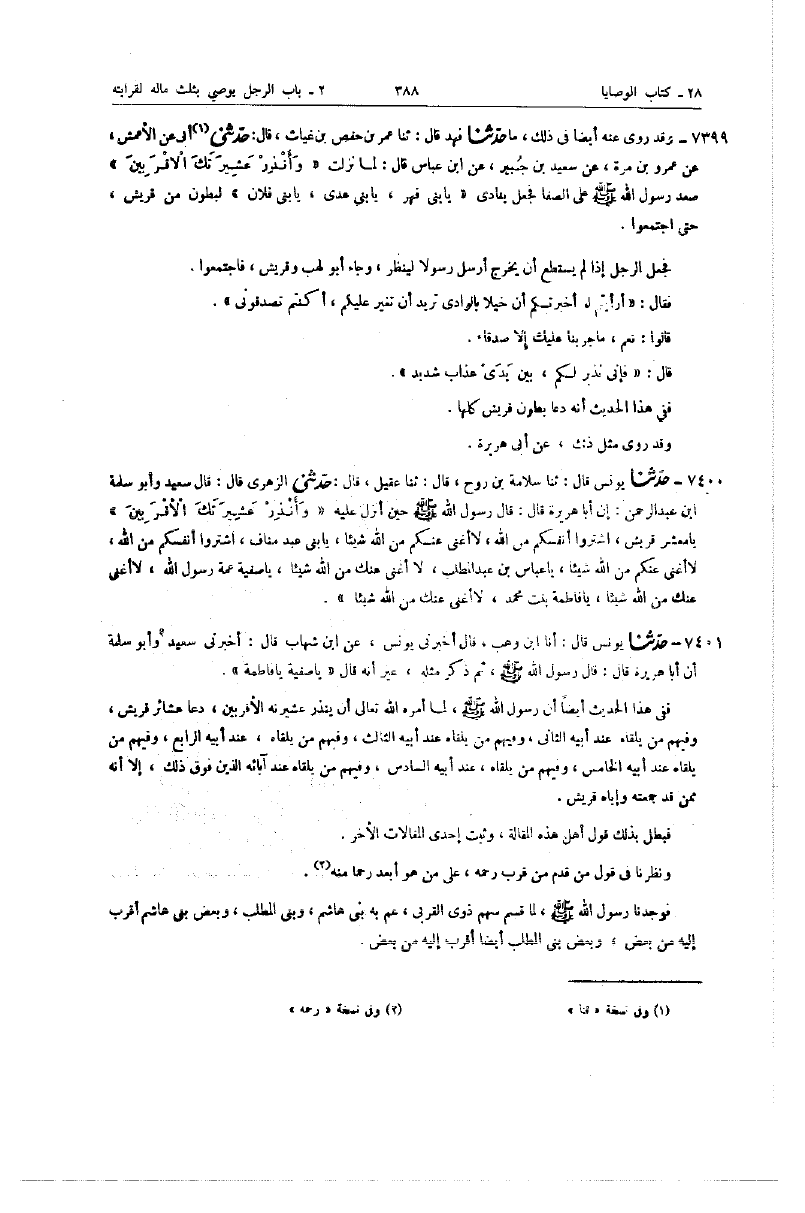 ٢٨ - كتاب الوصايا ٣٨٨ ٢ - باب الرجل يوصي بثلث ماله لقرابته
٧٣٩٩ - وقد روى عنه أيضا فى ذلك ، ما حدثنا فهد قال : ثنا عمر بن حفص بن غياث ، قال: حدثنى (١) أبى عن الأعمش ،
عن عمرو بن مرة ، عن سعيد بن جُبير ، عن ابن عباس قال : لما نزلت « وَأَنْذِرْ عَشِيرَتَكَ الْأَقْرَبِينَ »
صعد رسول الله ﷺ على الصفا فجعل ينادى « يا بنى فهر ، يا بنى عدى ، يا بنى فلان » لبطون من قريش ،
حتى اجتمعوا .
فجعل الرجل إذا لم يستطع أن يخرج أرسل رسولا لينظر ، وجاء أبو لهب وقريش ، فاجتمعوا .
فقال : « أرأيتم لو أخبرتكم أن خيلا بالوادى تريد أن تغير عليكم ، أكنتم تصدقونى » .
قالوا : نعم ، ماجربنا عليك إلا صدقاء .
قال : « فإنى نذير لكم ، بين يَدَىْ عذاب شديد » .
ففى هذا الحديث أنه دعا بطون قريش كلها .
وقد روى مثل ذلك ، عن أبى هريرة .
٧٤٠٠ - حدثنا يونس قال : ثنا سلامة بن روح ، قال : ثنا عقيل ، قال : حدثنى الزهرى قال : قال سعيد وأبو سلمة
ابن عبدالرحمن : إن أبا هريرة قال : قال رسول الله ﷺ حين أنزل عليه « وَأَنْذِرْ عَشِيرَتَكَ الْأَقْرَبِينَ »
يامعشر قريش ، اشتروا أنفسكم من الله ، لاأغنى عنكم من الله شيئا ، يابنى عبد مناف ، اشتروا أنفسكم من الله ،
لاأغنى عنكم من الله شيئا ، ياعباس بن عبدالمطلب ، لا أغنى عنك من الله شيئا ، ياصفية عمة رسول الله ، لاأغنى
عنك من الله شيئا ، يافاطمة بنت محمد ، لاأغنى عنك من الله شيئا » .
٧٤٠١ - حدثنا يونس قال : أنا ابن وهب ، قال أخبرنى يونس ، عن ابن شهاب قال : أخبرنى سعيد وأبو سلمة
أن أبا هريرة قال : قال رسول الله ﷺ ، ثم ذكر مثله ، غير أنه قال « ياصفية يافاطمة » .
ففى هذا الحديث أيضاً أن رسول الله ﷺ ، لما أمره الله تعالى أن ينذر عشيرته الأقربين ، دعا عشائر قريش ،
وفيهم من يلقاه عند أبيه الثانى ، وفيهم من يلقاه عند أبيه الثالث ، وفيهم من يلقاه ، عند أبيه الرابع ، وفيهم من
يلقاه عند أبيه الخامس ، وفيهم من يلقاه ، عند أبيه السادس ، وفيهم من يلقاه عند آبائه الذين فوق ذلك ، إلا أنه
ممن قد جمعته وإياه قريش .
فبطل بذلك قول أهل هذه المقالة ، وثبت إحدى المقالات الأخر .
ونظرنا فى قول من قدم من قرب رحمه ، على من هو أبعد رحما منه (٢) .
فوجدنا رسول الله ﷺ ، لما قسم سهم ذوى القربى ، عم به بنى هاشم ، وبنى المطلب ، وبعض بنى هاشم أقرب
إليه من بعض ، وبعض بنى المطلب أيضا أقرب إليه من بعض .
(١) وفى نسخة « ثنا » (٢) وفى نسخة « رحمه »